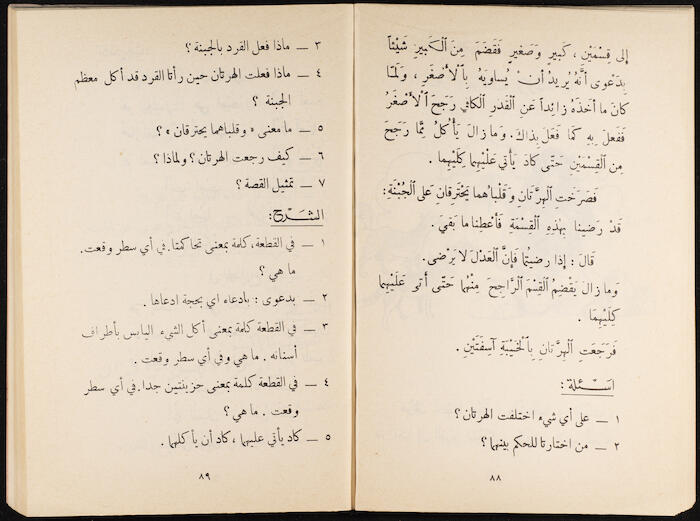 إلى قِسْمَيْنِ ، كَبِيرٍ وَصَغيرٍ فَقَضَمَ مِنَ ٱلْكَبِيرِ شَيْئاً
بِدَعْوى أَنَّهُ يُرِيدُ أَنْ يُساوِيَهُ بِٱلْأَصْغَرِ ، وَلَمَّا
كانَ ما أَخَذَهُ زائِداً عَنِ ٱلْقَدَرِ ٱلْكافي رَجَحَ ٱلْأَصْغَرُ
فَفَعلَ بِهِ كَما فَعَلَ بِذاكَ. وَمازالَ يَأْكُلُ مِمَّا رَجَحَ
مِنِ ٱلْقِسْمَيْنِ حَتَّى كادَ يَأْتي عَلَيْهِما كِلَيْهِما .
فَصَرَخَتِ ٱلْهِرَّتانِ وَقَلْباهُما يَحْتَرِقانِ عَلى ٱلْجُبْنَةِ :
قَدْ رَضِينا بِهٰذِهِ ٱلْقِسْمَةِ فَأَعْطِنا ما بَقيَ .
قالَ : إذا رضِيتُما فَإنَّ ٱلْعَدْلَ لا يَرْضى .
وَمازالَ يَقْضِمُ ٱلْقِسْمَ ٱلْرَّاجِحَ مِنْهُما حَتَّى أَتى عَلَيْهِما
كِلَيْهِمَا .
فَرَجَعَتِ ٱلْهِرَّتانِ بِٱلْخَيْبَةِ آسِفَتَيْنِ .
اسْئلة :
١ ــ على أي شيء اختلفت الهرتان ؟
٢ ــ من اختارتا للحكم بينهما ؟
٨٨
٣ ــ ماذا فعل القرد بالجبنة ؟
٤ ــ ماذا فعلت الهرتان حين رأتا القرد قد أكل معظم
الجبنة ؟
٥ ــ ما معنى « وقلباهما يحترقان » ؟
٦ ــ كيف رجعت الهرتان ؟ ولماذا ؟
٧ ــ تمثيل القصة ؟
الشرح :
١ ــ في القطعة، كلمة بمعنى تحاكمتا. في أي سطر وقعت.
ما هي ؟
٢ ــ بدعوى : بادعاء اي بحجة ادعاها .
٣ ــ في القطعة كلمة بمعنى أكل الشيء اليابس بأطراف
أسنانه . ما هي وفي أي سطر وقعت .
٤ ــ في القطعة كلمة بمعنى حزينتين جدا. في أي سطر
وقعت . ما هي ؟
٥ ــ كاد يأتي عليهما ، كاد أن يأكلهما .
٨٩